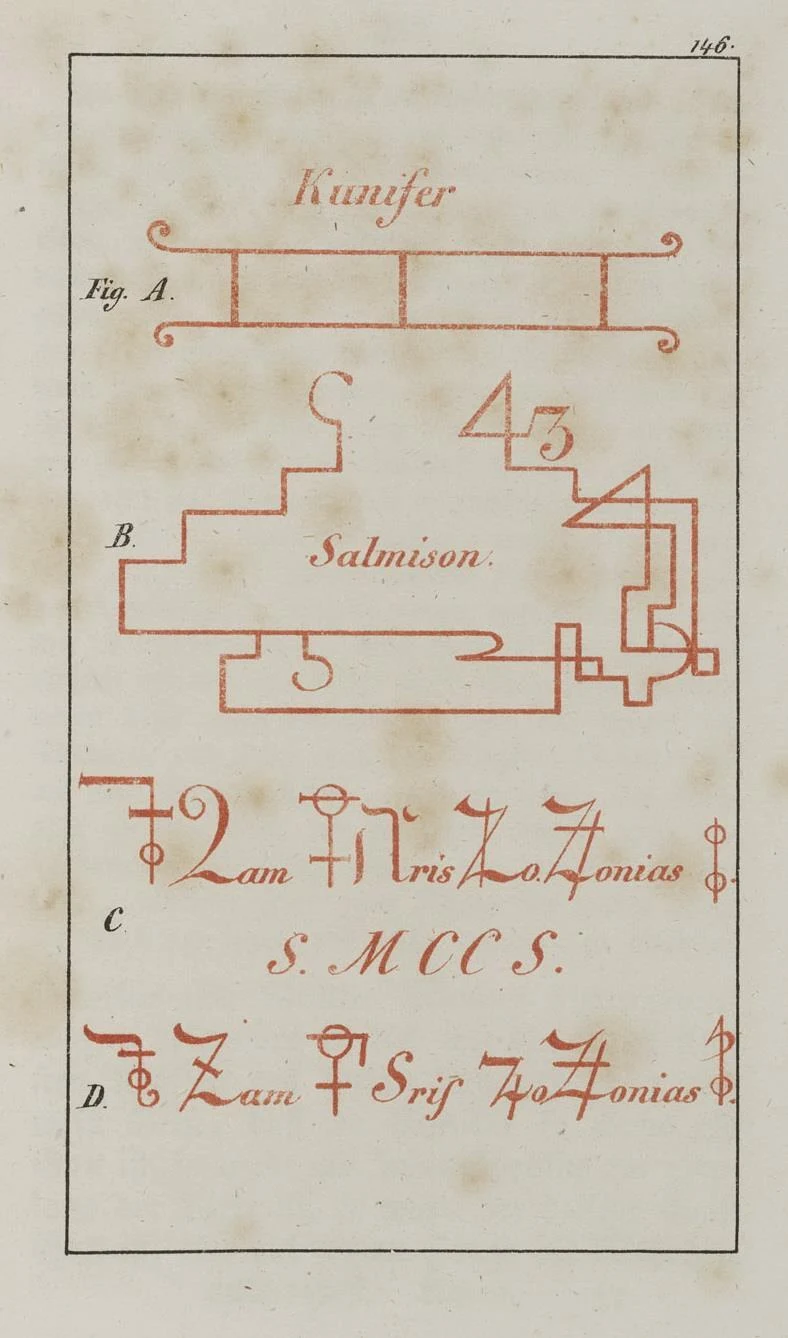 146.
Kunifer
Fig. A.
43
B.
Salmison.
am ris o. onias
C
S. M C C S.
D. Zam Sriſ o onias